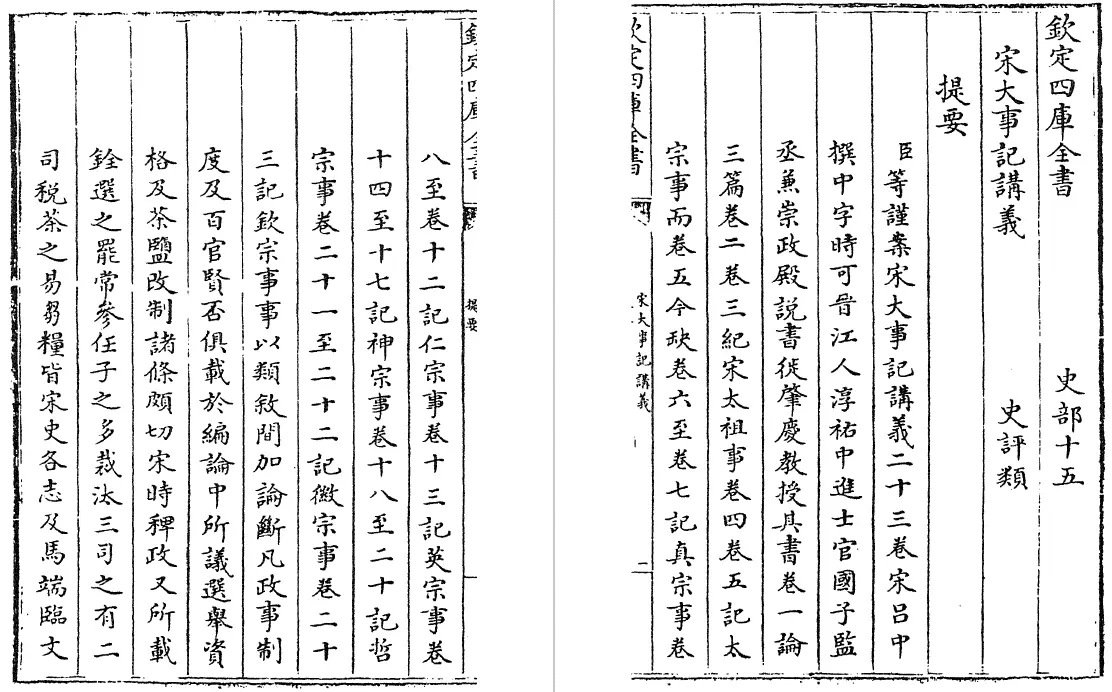 欽定四庫全書 史部十五
宋大事記講義 史評類
提要
臣等謹案宋大事記講義二十三卷宋呂中
撰中字時可晉江人淳祐中進士官國子監
丞兼崇政殿説書徙肇慶教授其書卷一論
三篇卷二卷三紀宋太祖事卷四卷五記太
宗事而卷五今缺卷六至卷七記真宗事卷
欽定四庫全書
宋大事記講義
二
欽定四庫全書
提要
八至卷十二記仁宗事卷十三記英宗事卷
十四至十七記神宗事卷十八至二十記哲
宗事卷二十一至二十二記徽宗事卷二十
三記欽宗事事以類敘間加論斷凡政事制
度及百官賢否俱載於編論中所議選舉資
格及茶鹽改制諸條頗切宋時稗政又所載
銓選之罷常參任子之多裁汰三司之有二
司税茶之易芻糧皆宋史各志及馬端臨文